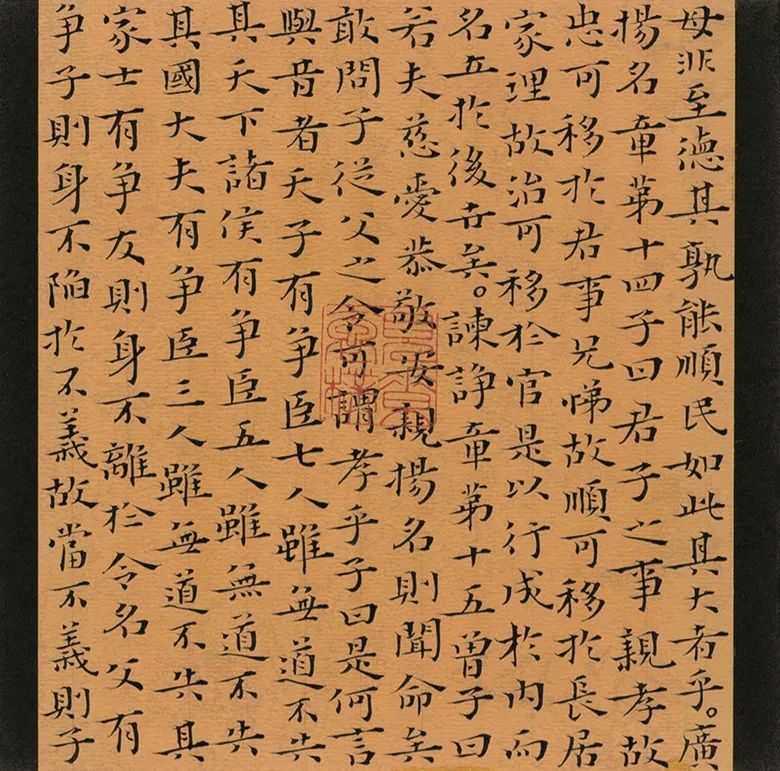 母非至德其孰能順民如此其大者乎。廣
揚名章第十四子曰君子之事親孝故
忠可移於君事兄悌故順可移於長居
家理故治可移於官是以行成於内而
名立於後世矣。諫諍章第十五曾子曰
若夫慈愛恭敬安親揚名則聞命矣
敢問子從父之令可謂孝乎子曰是何言
與昔者天子有争臣七人雖無道不失
其天下諸侯有争臣五人雖無道不失
其國大夫有争臣三人雖無道不失其
家士有争友則身不離於令名父有
争子則身不陷於不義故當不義則子